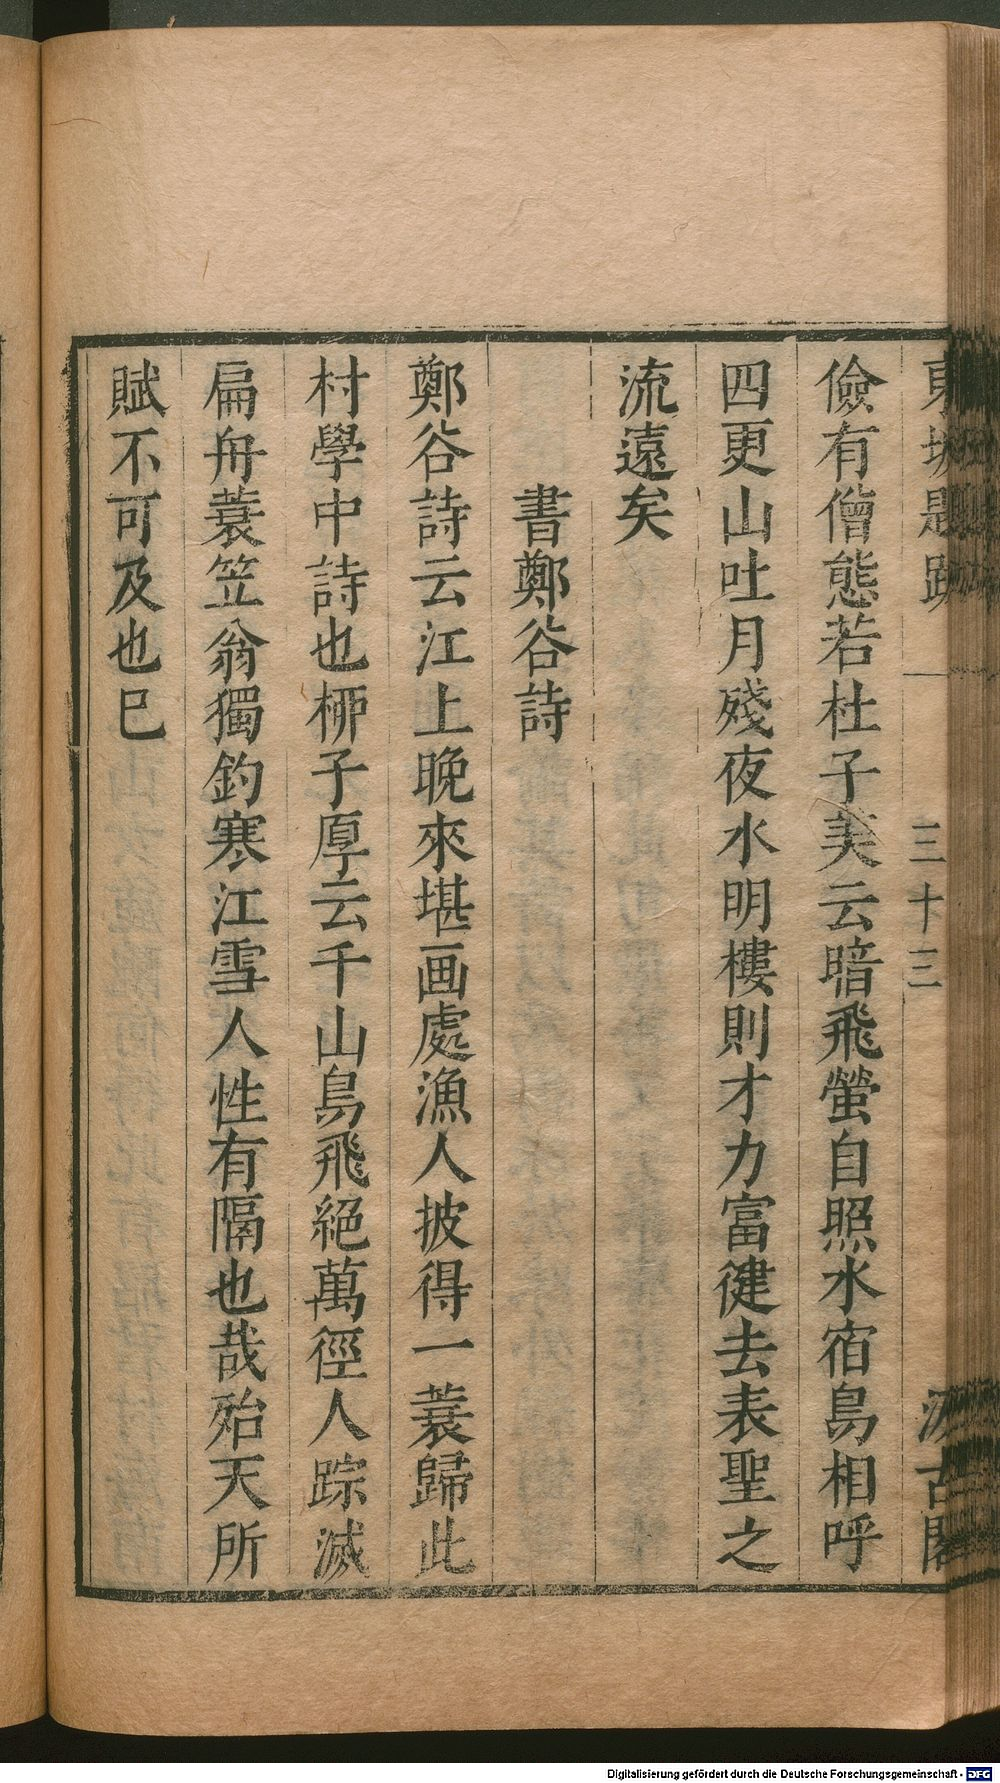 東坡題跋 三十三 汲古閣
儉有僧態若杜子美云暗飛螢自照水宿鳥相呼
四更山吐月殘夜水明樓則才力富健去表聖之
流遠矣
書鄭谷詩
鄭谷詩云江上晚來堪画處漁人披得一蓑歸此
村學中詩也栁子厚云千山鳥飛絕萬徑人踪滅
扁舟蓑笠翁獨釣寒江雪人性有隔也哉殆天所
賦不可及也巳
Digitalisierung gefördert durch die Deutsche Forschungsgemeinschaft - DFG